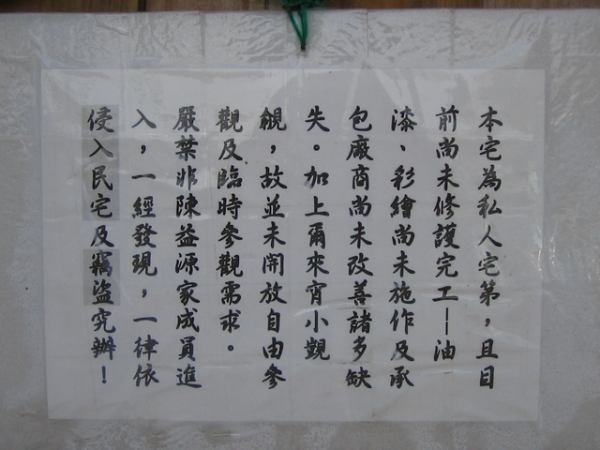 本宅為私人宅第，且目
前尚未修護完工—油
漆、彩繪尚未施作及承
包廠商尚未改善諸多缺
失。加上爾來宵小覬
覦，故並未開放自由參
觀及臨時參觀需求。
嚴禁非陳益源家成員進
入，一經發現，一律依
侵入民宅及竊盜究辦！